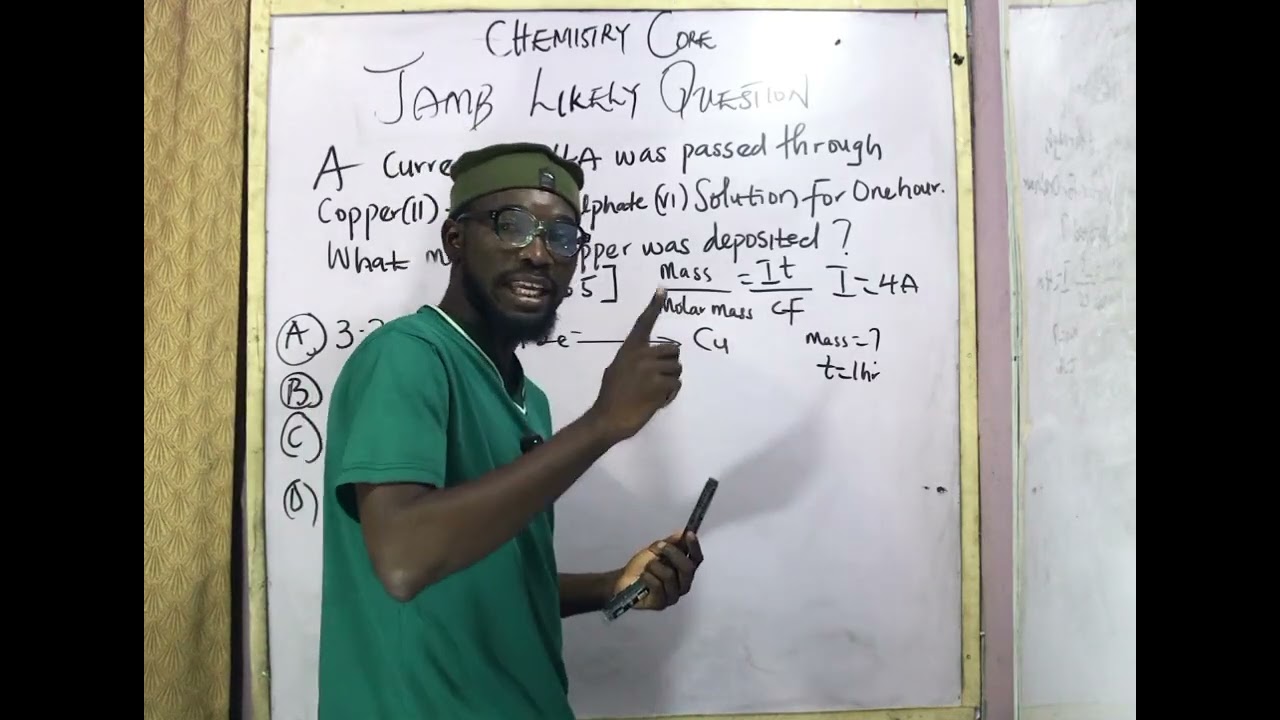 CHEMISTRY CORE
JAMB LIKELY QUESTION
A Curre 4A was passed through
Copper(II) lphate (VI) Solution for One hour.
What m pper was deposited ?
5] Mass/Molar mass = It/CF I=4A
(A) 3. e⁻ → Cu Mass=?
t=1hr
(B)
(C)
(D)